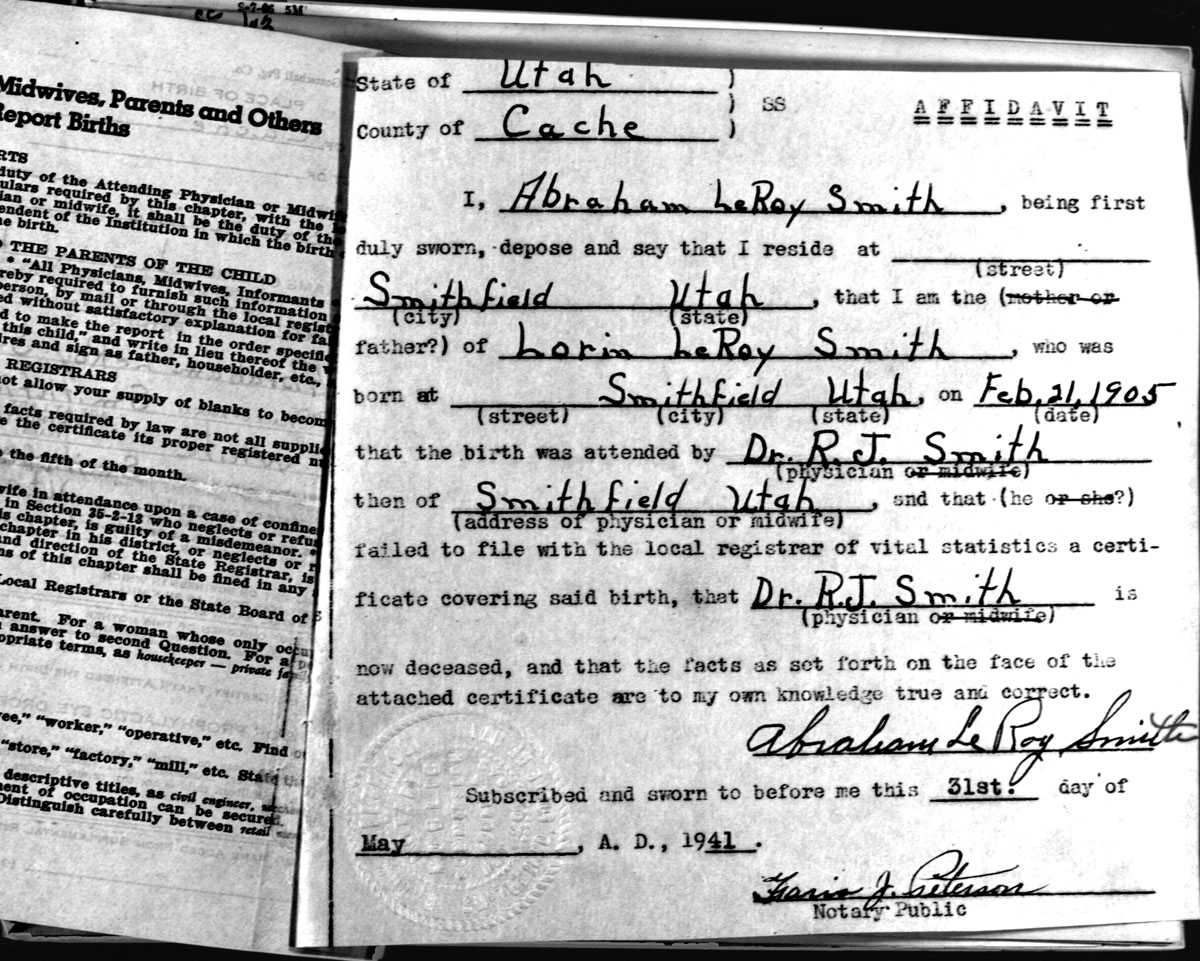 5-7-06 5M
Midwives, Parents and Others
Report Births
RTS
duty of the Attending Physician or Midwife
ulars required by this chapter, with the
ian or midwife, it shall be the duty of the
endent of the Institution in which the birth
he birth.
THE PARENTS OF THE CHILD
* "All Physicians, Midwives, Informants
reby required to furnish such information
person, by mail or through the local regist
ed without satisfactory explanation for fa
d to make the report in the order specifie
this child," and write in lieu thereof the
res and sign as father, householder, etc.,
REGISTRARS
not allow your supply of blanks to becom
facts required by law are not all supplie
e the certificate its proper registered nu
the fifth of the month.
wife in attendance upon a case of confine
in Section 35-2-13 who neglects or refus
is chapter, is guilty of a misdemeanor. *
chapter in his district, or neglects or r
and direction of the State Registrar, is
ns of this chapter shall be fined in any
Local Registrars or the State Board of
arent. For a woman whose only occu
answer to second Question. For a
opriate terms, as housekeeper — private fa
ee," "worker," "operative," etc. Find
"store," "factory," "mill," etc. State
descriptive titles, as civil engineer,
ent of occupation can be secured.
Distinguish carefully between retail
State of Utah )
) SS AFFIDAVIT
County of Cache )
I, Abraham LeRoy Smith, being first
duly sworn, depose and say that I reside at
(street)
Smithfield Utah, that I am the (mother or
(city) (state)
father?) of Lorin LeRoy Smith, who was
born at Smithfield Utah, on Feb. 21, 1905
(street) (city) (state) (date)
that the birth was attended by Dr. R. J. Smith
(physician or midwife)
then of Smithfield Utah, and that (he or she?)
(address of physician or midwife)
failed to file with the local registrar of vital statistics a certi-
ficate covering said birth, that Dr. R.J. Smith is
(physician or midwife)
now deceased, and that the facts as set forth on the face of the
attached certificate are to my own knowledge true and correct.
Abraham Le Roy Smith
Subscribed and sworn to before me this 31st. day of
May, A. D., 1941.
J. Peterson
Notary Public